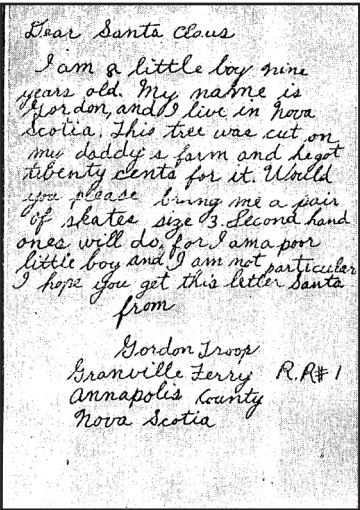 Dear Santa Claus
I am a little boy nine
years old. My name is
Gordon, and I live in Nova
Scotia. This tree was cut on
my daddy's farm and he got
twenty cents for it. Would
you please bring me a pair
of skates size 3. Second hand
ones will do, for I am a poor
little boy and I am not particular
I hope you get this letter Santa
from
Gordon Troop
Granville Ferry R.R# 1
Annapolis County
Nova Scotia